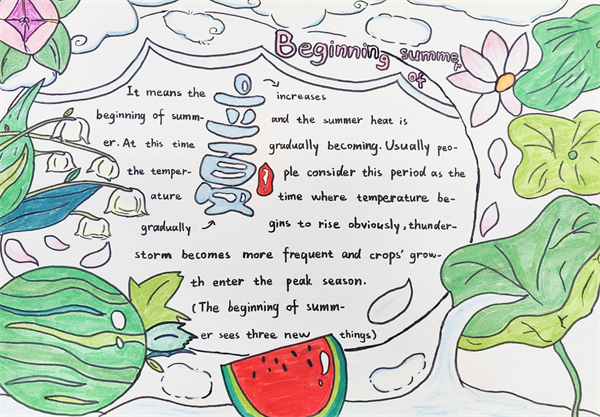 Beginning of summer
立夏
It means the
beginning of summ-
er. At this time
the temper-
ature
gradually
increases
and the summer heat is
gradually becoming. Usually peo-
ple consider this period as the
time where temperature be-
gins to rise obviously, thunder-
storm becomes more frequent and crops' grow-
th enter the peak season.
(The beginning of summ-
er sees three new things)